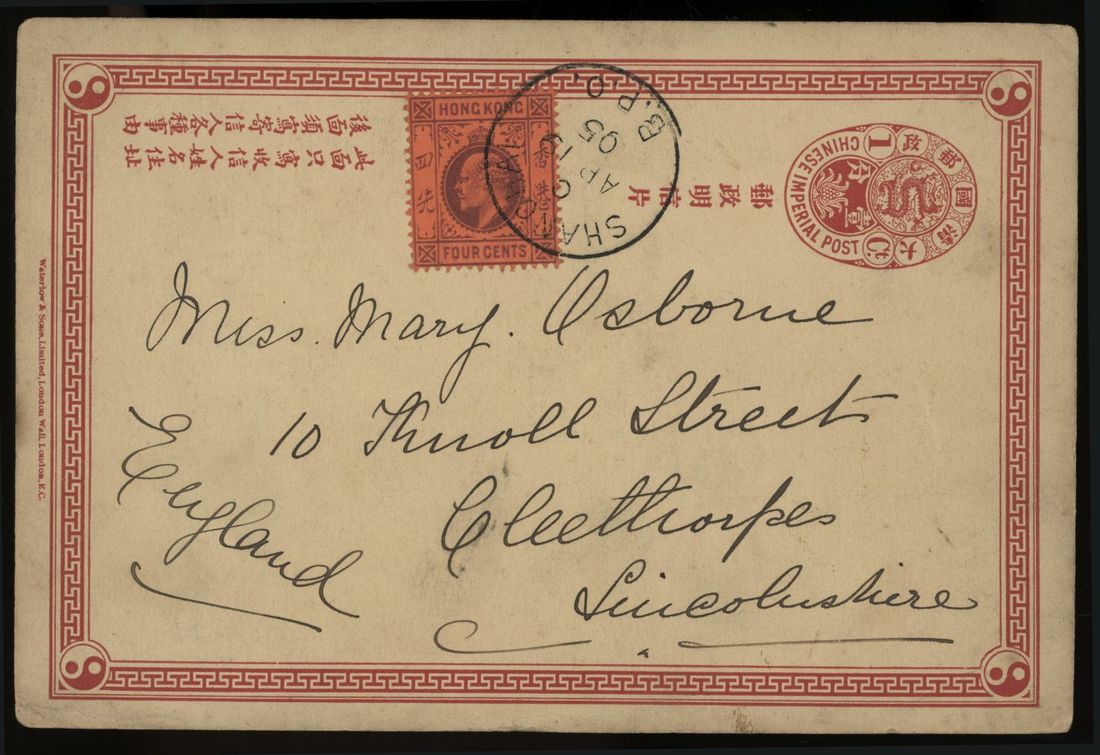 後面須寫寄信人各種事由
此面只寫收信人姓名住址
郵政明信片
大清國郵政
CHINESE IMPERIAL POST
1
Ct
壹分
HONG KONG
香港
四先
FOUR CENTS
SHANGHAI
B.P.O.
C
AP 13
05
Miss. Mary. Osborne
10 Knoll Street
Cleethorpes
Lincolnshire
England
Waterlow & Sons Limited, London Wall, London, E.C.